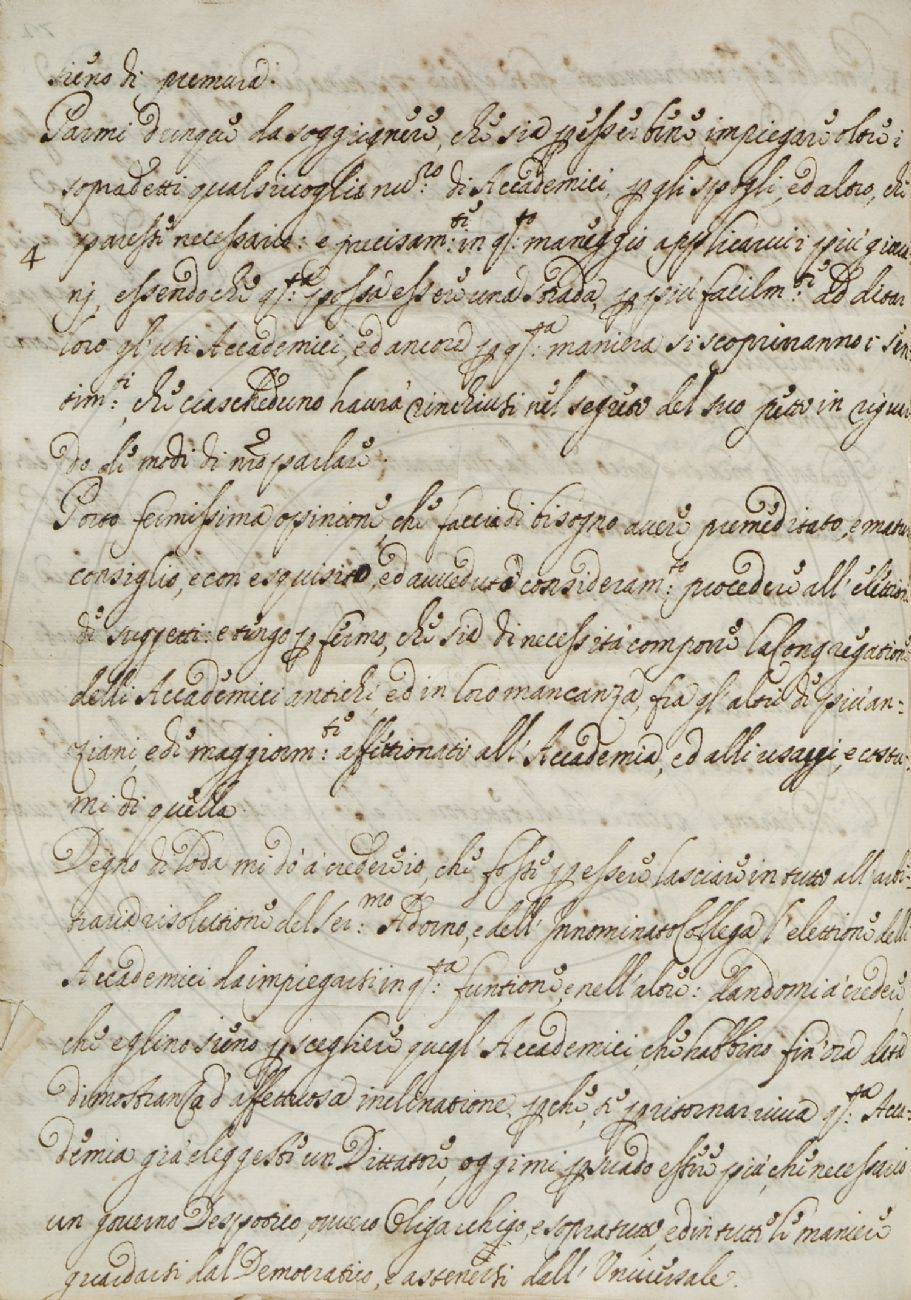 sieno di premura.
Parmi dunque da soggiugnere, che sia p esser bene impiegare oltre i
sopradetti qualsivoglia nu.ro di Accademici, p gli spogli, ed altro, che
paresse necessario: e precisam.te in q.to maneggio applicarvi i più giova-
4
nj, essendo che q.ta possa essere una strada, p più facilm.te additar
loro gl'usi Accademici, ed ancora p q.ta maniera si scopriranno i sen-
tim.ti, che ciascheduno havrà rinchiusi nel segreto del suo petto in riguar
do alli modi di nro parlare.
Porto fermissima opinione, che faccia di bisogno avere premeditato, e maturo
consiglio, e con esquisito, ed avveduto consideram.to procedere all'elettion
de suggetti: e tengo p fermo, che sia di necessità comporre la Congregatione
delli Accademici antichi, ed in loro mancanza, fra gl'altri di più an=
ziani e di maggiorm.te affettionati all'Accademia, ed alli usaggi, e costu-
mi di quella.
Degno di loda mi do à credere io, che fosse p essere lasciare in tutto all'arbi-
traria risolutione del Ser.mo Adorno, e dell'Innominato Collega l'elettione delli
Accademici da impiegarsi in q.ta funtione, e nell'altre: dandomi à credere,
che eglino sieno p scegliere quegl'Accademici, che habbino fin'ora data
dimostranza d'affettuosa inclinatione. pche, se p ritornar viva q.ta Acca-
demia già eleggeste un Dittatore, oggi mi psuado essere più, che necessario
un governo Despotico, ovvero Oligarchigo, e sopratutto, ed in tutte le maniere
guardarsi dal Democratico, e astenersi dall'Universale.